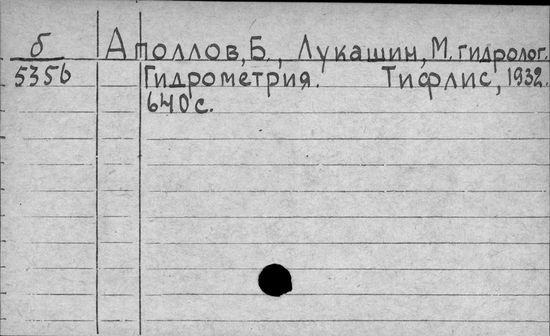 б Аполлов, Б., Лукашин, М. гидролог.
5356 Гидрометрия. Тифлис, 1932.
640 с.